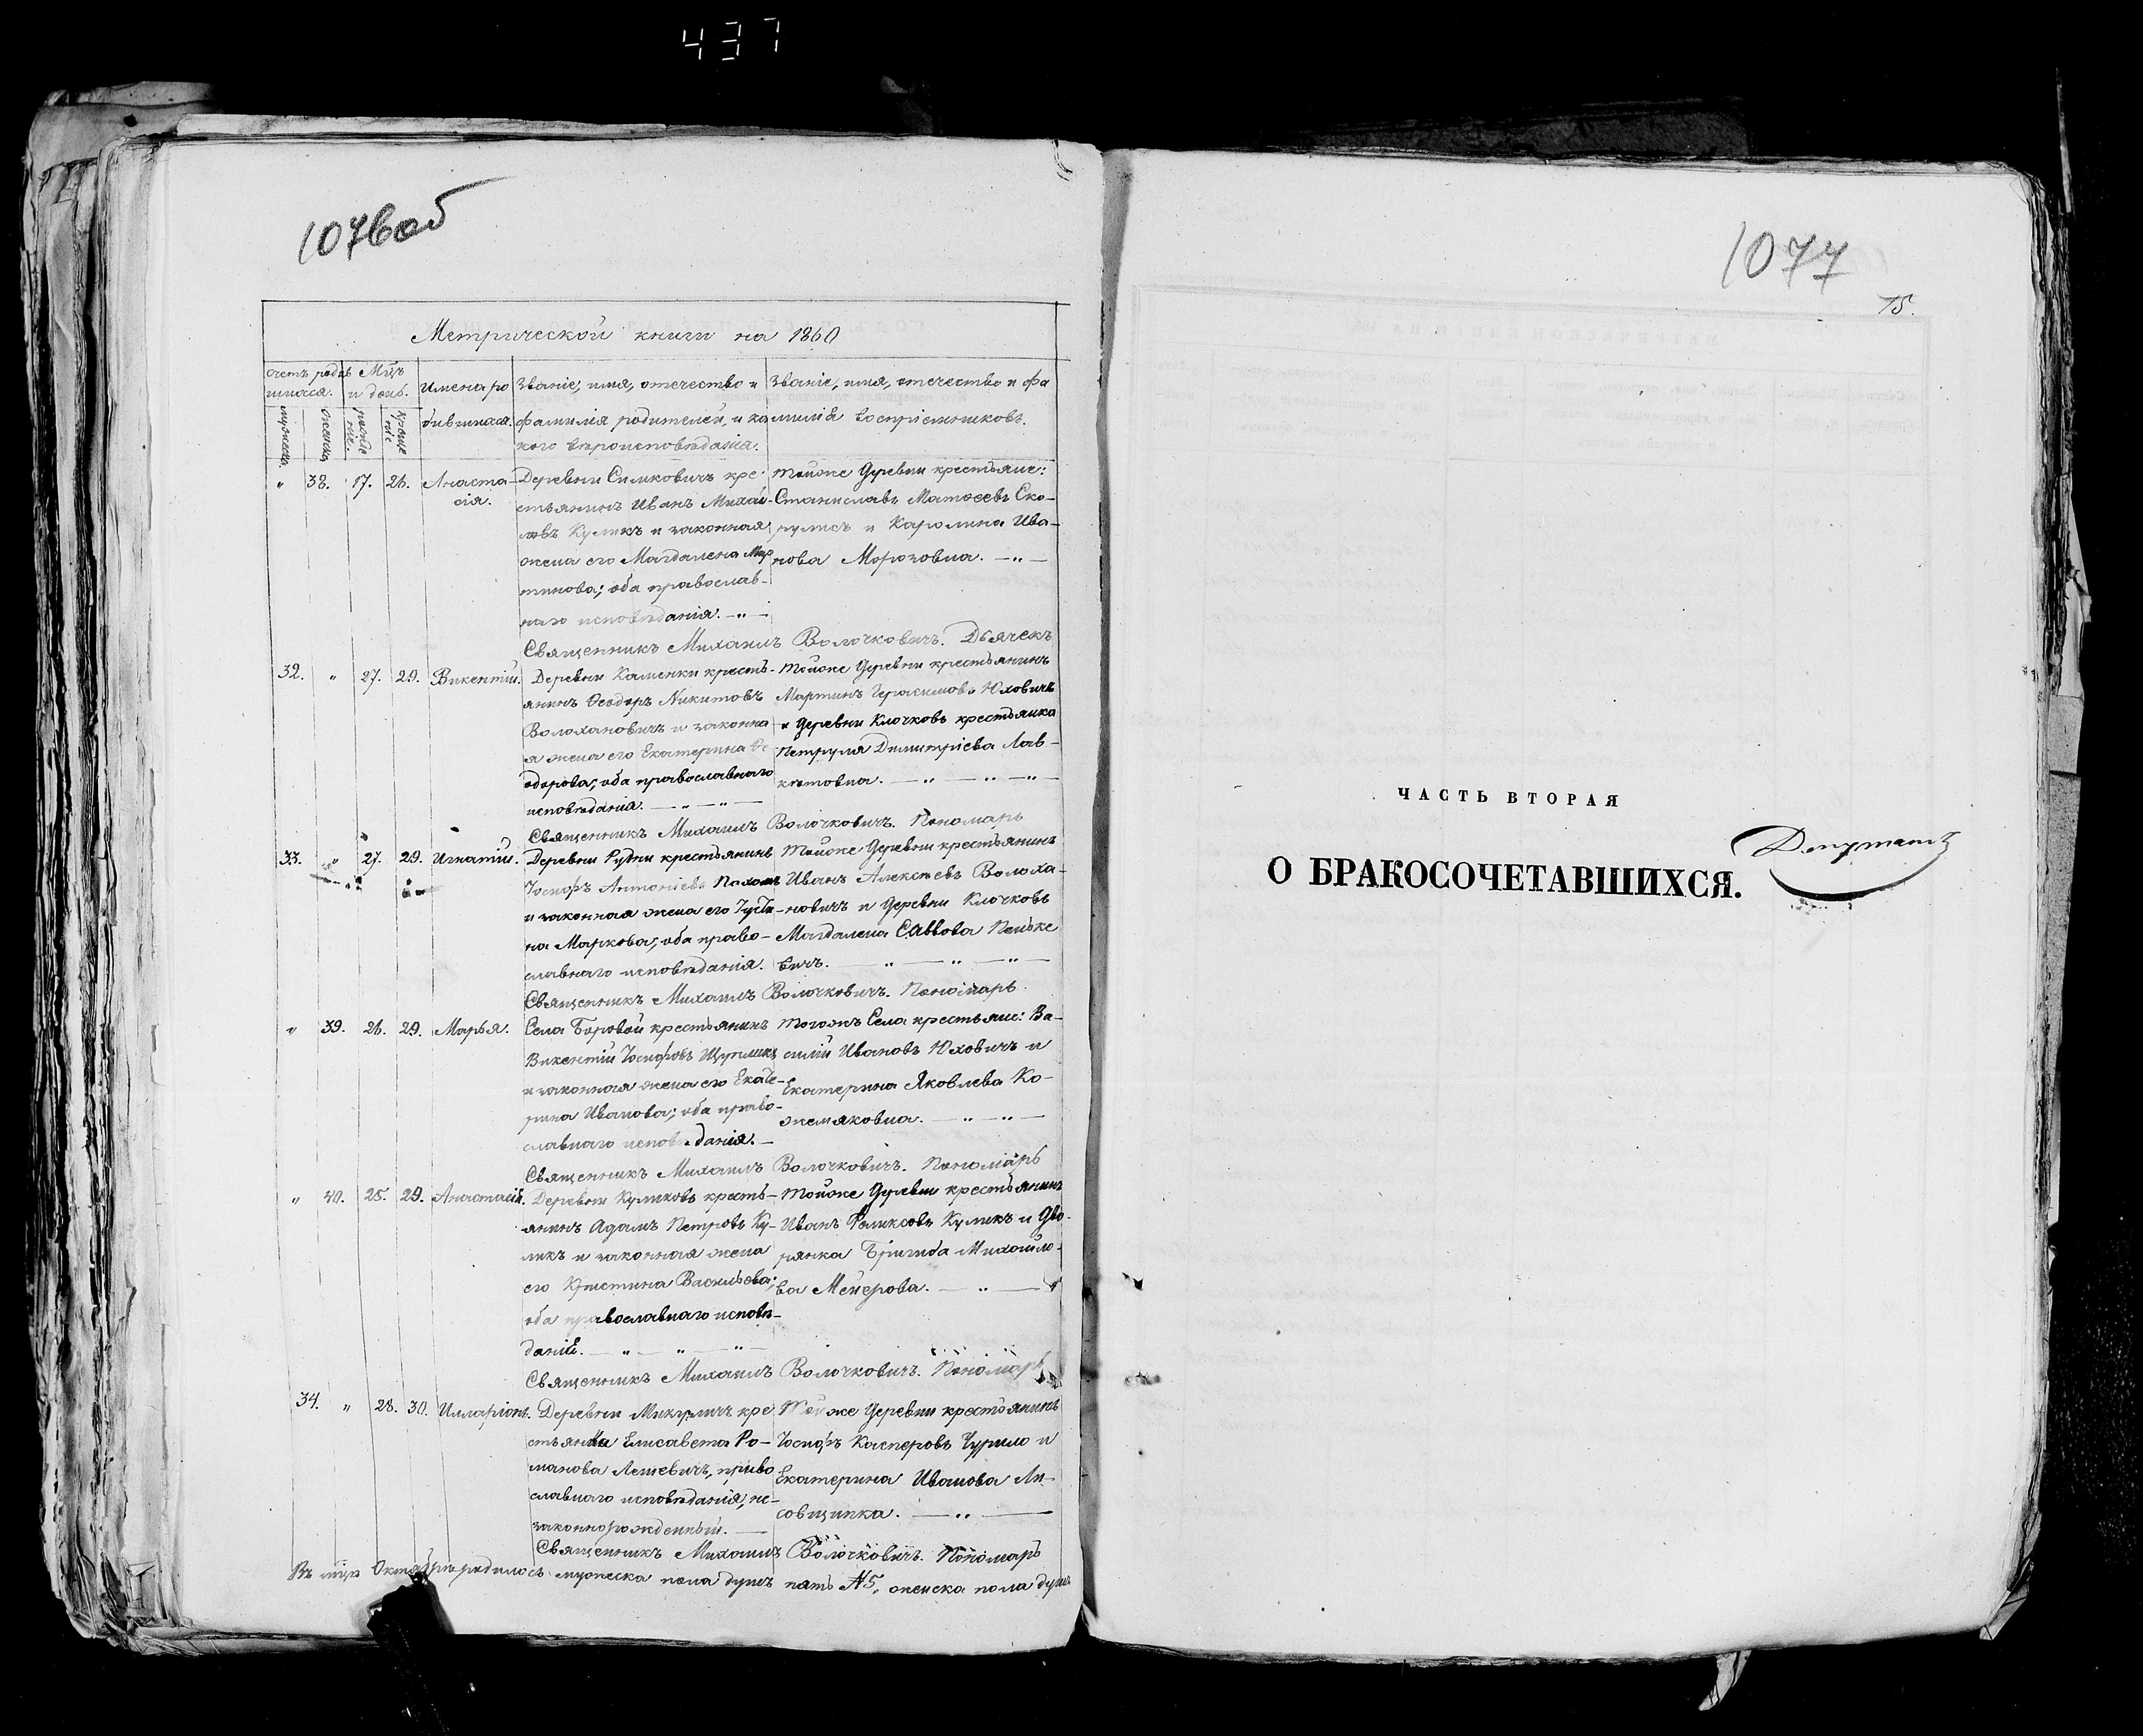 437
1076 об
Метрической книги на 1860
Счетъ родив
шихся.
Мцъ
и день.
Имена ро
дившихся.
Званіе, имя, отечество и
фамилія родителей, и ка
кого вѣроисповѣданія.
Званіе, имя, отечество и фа
милія воспріемниковъ.
мужеска.
женска.
рожде
ніе.
креще
ніе
" 38. 17. 26. Анаста-
сія.
Деревни Симковичъ кре-
стьянинъ Иванъ Михай-
ловъ Куликъ и законная
жена его Магдалена Мар
тинова; оба православ-
наго исповѣданія. — " —
Тойже деревни крестьяне:
Станиславъ Матѳеевъ Ско-
рулисъ и Каролина Ива-
нова Морозовна. — " —
Священникъ Михаилъ Волочковичъ. Дьячекъ
32. " 27. 29. Викентій.
Деревни Каменки кресть-
янинъ Ѳеодоръ Никитовъ
Волохановичъ и законна
я жена его Екатерина Ѳе
одорова; оба православнаго
исповѣданія. — " — " —
Тойже деревни крестьянинъ
Мартинъ Герасимовъ Юховичъ
и деревни Клочковъ крестьянка
Петруля Димитріева Лав-
кетовна. — " — " — " —
Священникъ Михаилъ Волочковичъ. Пономарь
33. " 27. 29. Игнатій.
Деревни Рудни крестьянинъ
Іосифъ Антоніевъ Пахом
и законная жена его Іусти-
на Маркова; оба право-
славнаго исповѣданія.
Тойже деревни крестьянинъ
Иванъ Алексѣевъ Волоха-
новичъ и деревни Клочковъ
Магдалена Саввова Пеньке
вичъ. — " — " — " —
Священникъ Михаилъ Волочковичъ. Пономарь.
" 39. 26. 29. Марья.
Села Боровой крестьянинъ
Викентій Іосифовъ Щупликъ
и законная жена его Екате-
рина Иванова; оба право-
славнаго исповѣданія. —
Тогожъ Села крестьяне: Ва-
силій Ивановъ Юховичъ и
Екатерина Яковлева Ко-
жемяковна. — " — " —
Священникъ Михаилъ Волочковичъ. Пономарь
" 40. 25. 29. Анастасія.
Деревни Куликовъ кресть-
янинъ Адамъ Петровъ Ку-
ликъ и законная жена
его Кристина Васильева;
оба православнаго исповѣ-
данія. — " — " — " —
Тойже деревни крестьянинъ
Иванъ Феликсовъ Куликъ и дво-
рянка Бригида Михайло-
ва Мейерова. — " —
Священникъ Михаилъ Волочковичъ. Пономарь
34. " 28. 30. Илларіонъ.
Деревни Микуличъ кре
стьянка Елисавета Ро-
манова Лешевичъ, право
славнаго исповѣданія, не-
законнорожденный. —
Тойже деревни крестьянинъ
Іосифъ Касперовъ Чурило и
Екатерина Иванова Ли-
совщинка. — " —
Священникъ Михаилъ Волочковичъ. Пономарь
Въ мцѣ Октябрѣ родилось мужеска пола душъ пять №5, женска пола душъ
1077
75.
ЧАСТЬ ВТОРАЯ
О БРАКОСОЧЕТАВШИХСЯ.
Депутатъ